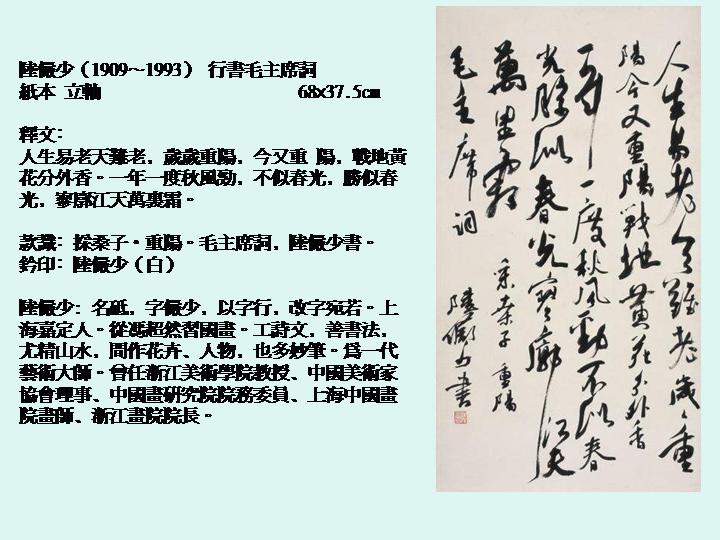 陸儼少（1909～1993） 行書毛主席詞
紙本 立軸 68x37.5cm
釋文：
人生易老天難老，歲歲重陽，今又重 陽，戰地黃
花分外香。一年一度秋風勁，不似春光，勝似春
光，寥廓江天萬裏霜。
款識：採桑子·重陽。毛主席詞，陸儼少書。
鈐印：陸儼少（白）
陸儼少：名砥，字儼少，以字行，改字宛若。上
海嘉定人。從馮超然習國畫。工詩文，善書法，
尤精山水，間作花卉、人物，也多妙筆。爲一代
藝術大師。曾任浙江美術學院教授、中國美術家
協會理事、中國畫研究院院務委員、上海中國畫
院畫師、浙江畫院院長。
人生易老天難老歲歲重
陽今又重陽戰地黃花分外香
一年一度秋風勁不似春
光勝似春光寥廓江天
萬里霜 采桑子 重陽
毛主席詞 陸儼少書